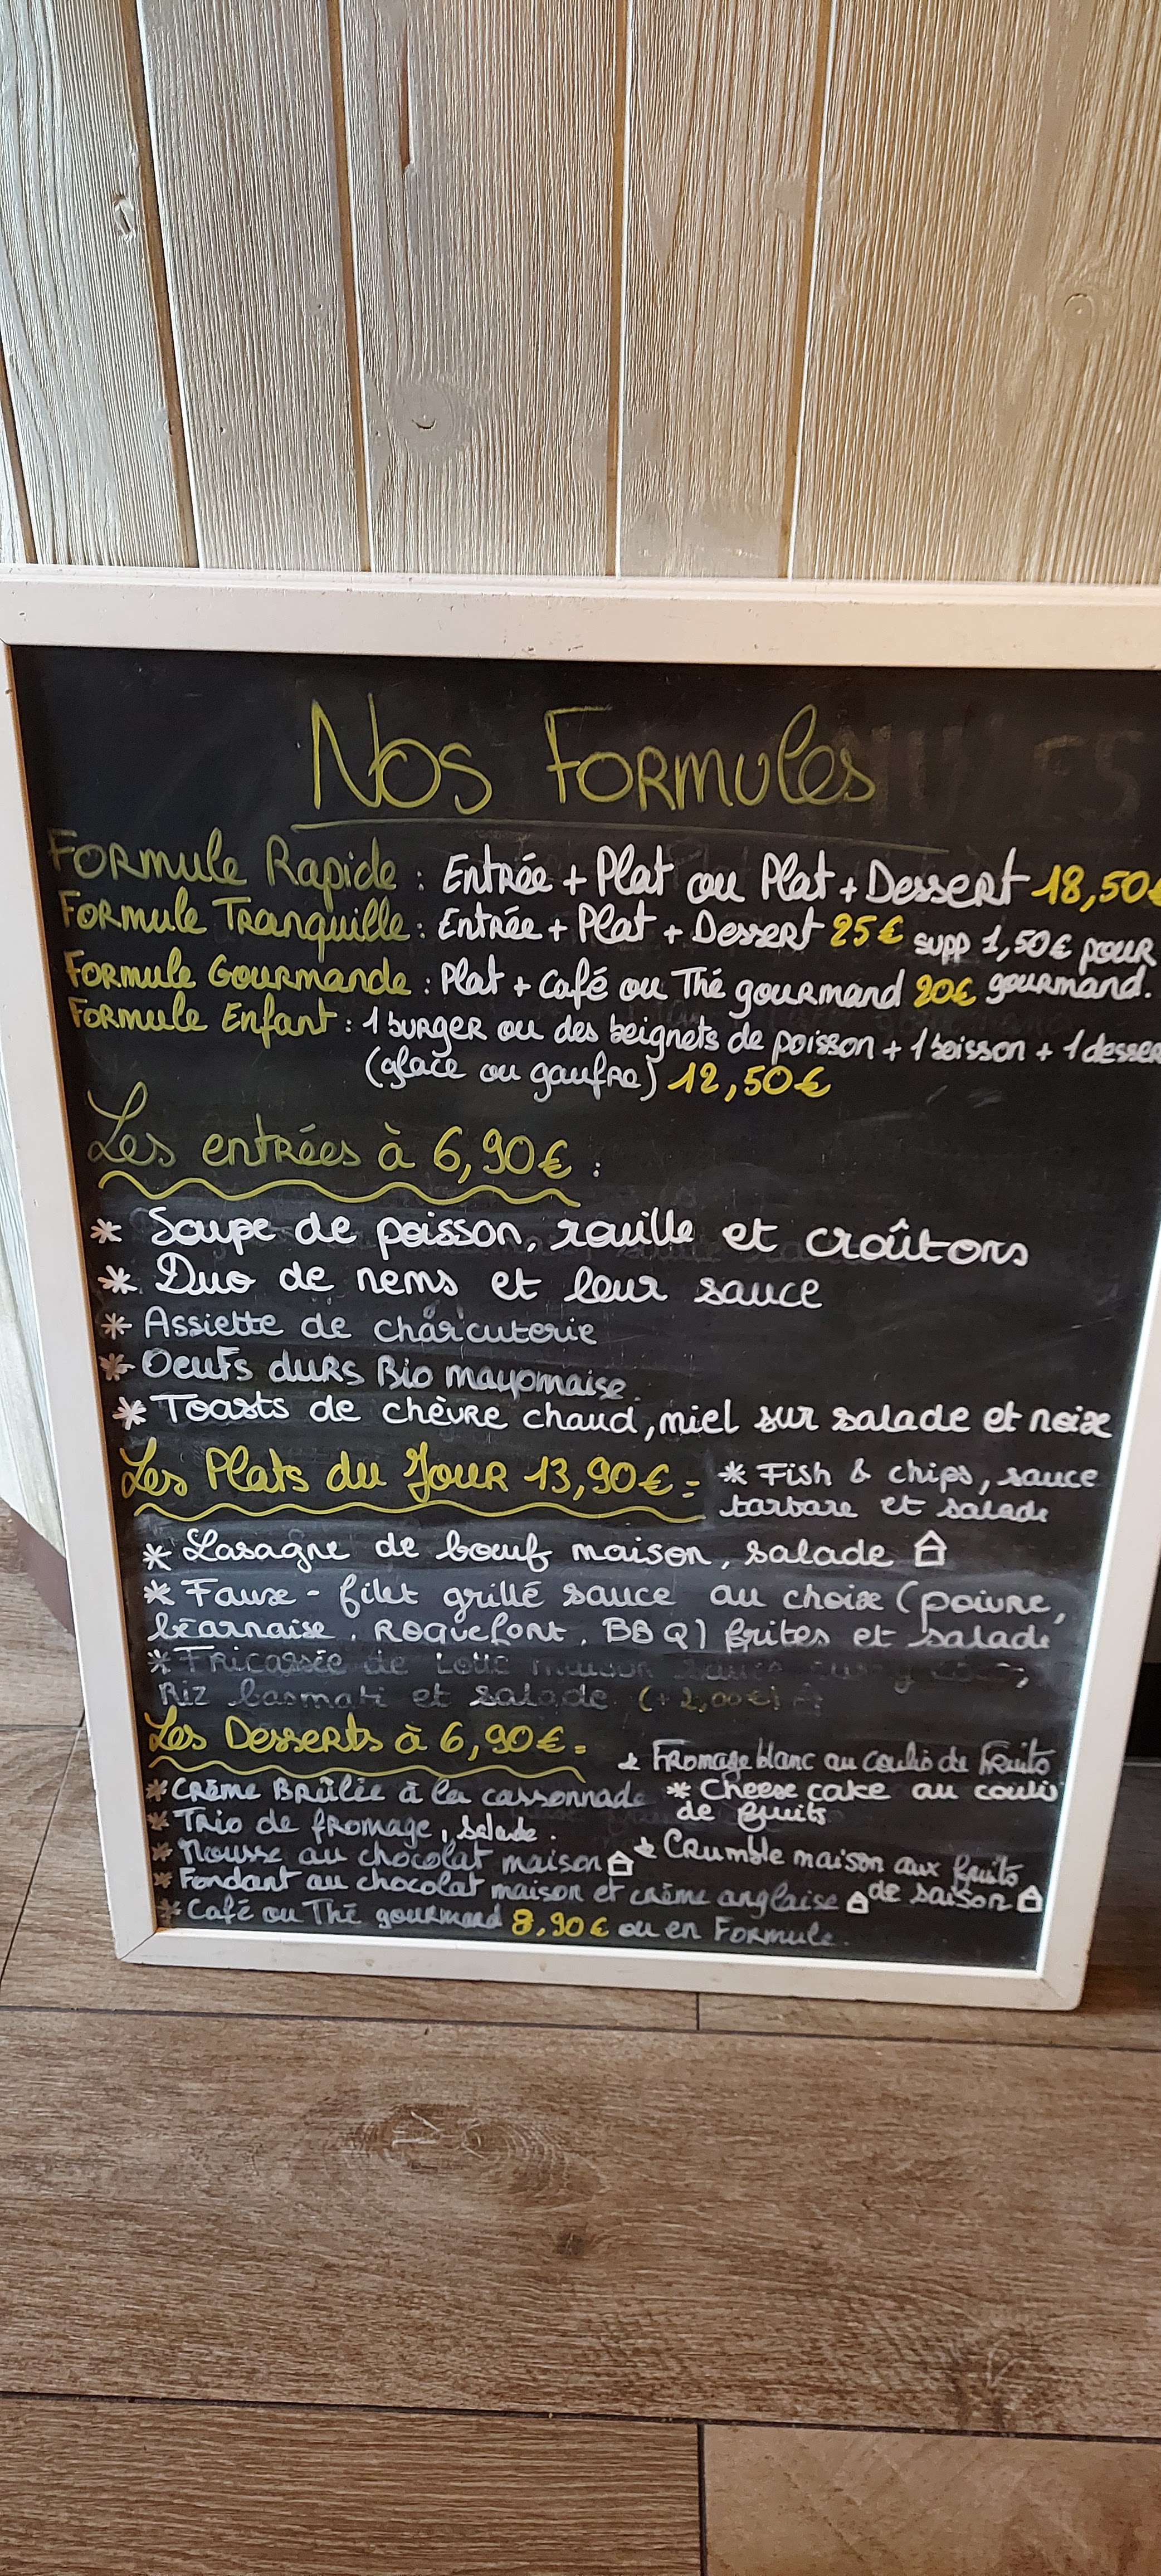 Nos Formules
Formule Rapide : Entrée + Plat ou Plat + Dessert 18,50€
Formule Tranquille : Entrée + Plat + Dessert 25€ supp 1,50€ pour
Formule Gourmande : Plat + Café ou Thé gourmand 20€ gourmand.
Formule Enfant : 1 burger ou des beignets de poisson + 1 boisson + 1 desser
(glace ou gaufre) 12,50€
Les entrées à 6,90€ :
* Soupe de poisson, rouille et croûtons
* Duo de nems et leur sauce
* Assiette de charcuterie
* Oeufs durs Bio mayonnaise.
* Toasts de chèvre chaud, miel sur salade et noix
Les Plats du Jour 13,90€ :
* Fish & chips, sauce
tartare et salade
* Lasagne de boeuf maison, salade
* Faux-filet grillé sauce au choix (poivre,
béarnaise, Roquefort, BBQ) frites et salade
* Fricassée de Lotte maison sauce curry coco,
Riz basmati et salade (+ 2,00€)
Les Desserts à 6,90€ :
* Fromage blanc au coulis de Fruits
* Crème Brûlée à la cassonnade
* Cheese cake au coulis
de fruits
* Trio de fromage, salade.
* Mousse au chocolat maison
* Crumble maison aux fruits
de saison
* Fondant au chocolat maison et crème anglaise
* Café ou Thé gourmand 8,90€ ou en Formule.